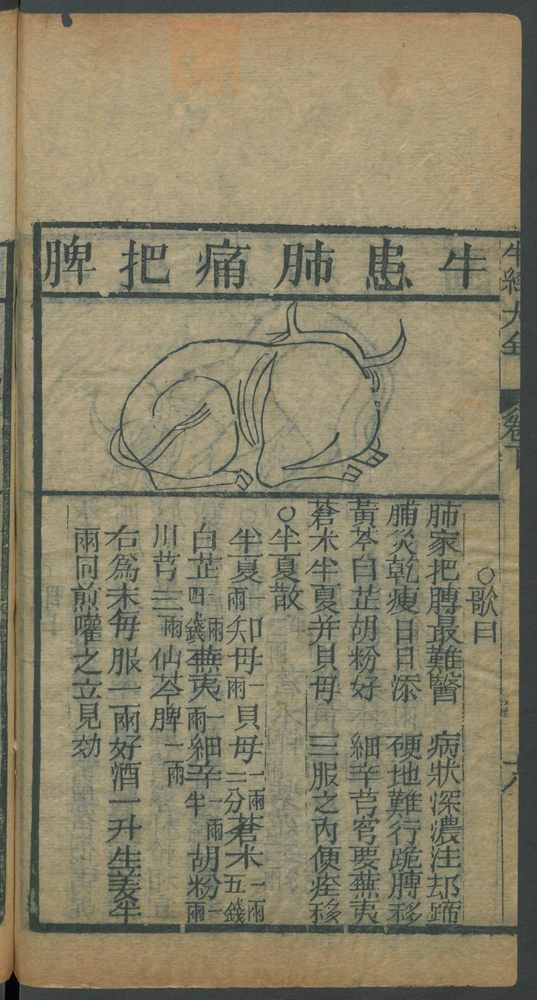 牛經大全
卷下
牛患肺痛把脾
○歌曰
肺家把膊最難醫 病狀深濃注却蹄
脯災乾瘦日日添 硬地難行跪膊移
黃芩白芷胡粉好 細辛芎窮要蕪夷
蒼朮半夏并貝母 三服之內便痊移
○半夏散
半夏一兩 知母一兩 貝母一兩二分 蒼朮一兩五錢
白芷一兩四錢 蕪夷一兩 細辛一兩半 胡粉一兩
川芎三兩 仙芩脾一兩
右爲末每服一兩好酒一升生姜半
兩同煎嚾之立見効